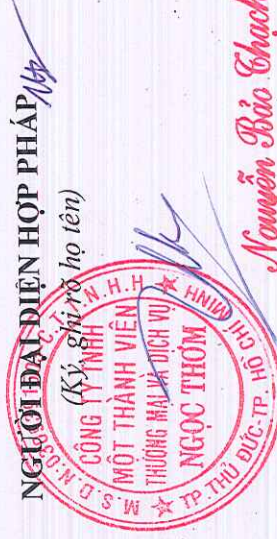 NGƯỜI ĐẠI DIỆN HỢP PHÁP
(Ký, ghi rõ họ tên)
M.S.D.N:030 C.T.T.N.H.H
CÔNG TY TNHH
MỘT THÀNH VIÊN
THƯƠNG MẠI VÀ DỊCH VỤ
NGỌC THƠM
TP.THỦ ĐỨC-TP. HỒ CHÍ MINH
Nguyễn Bảo Thạch